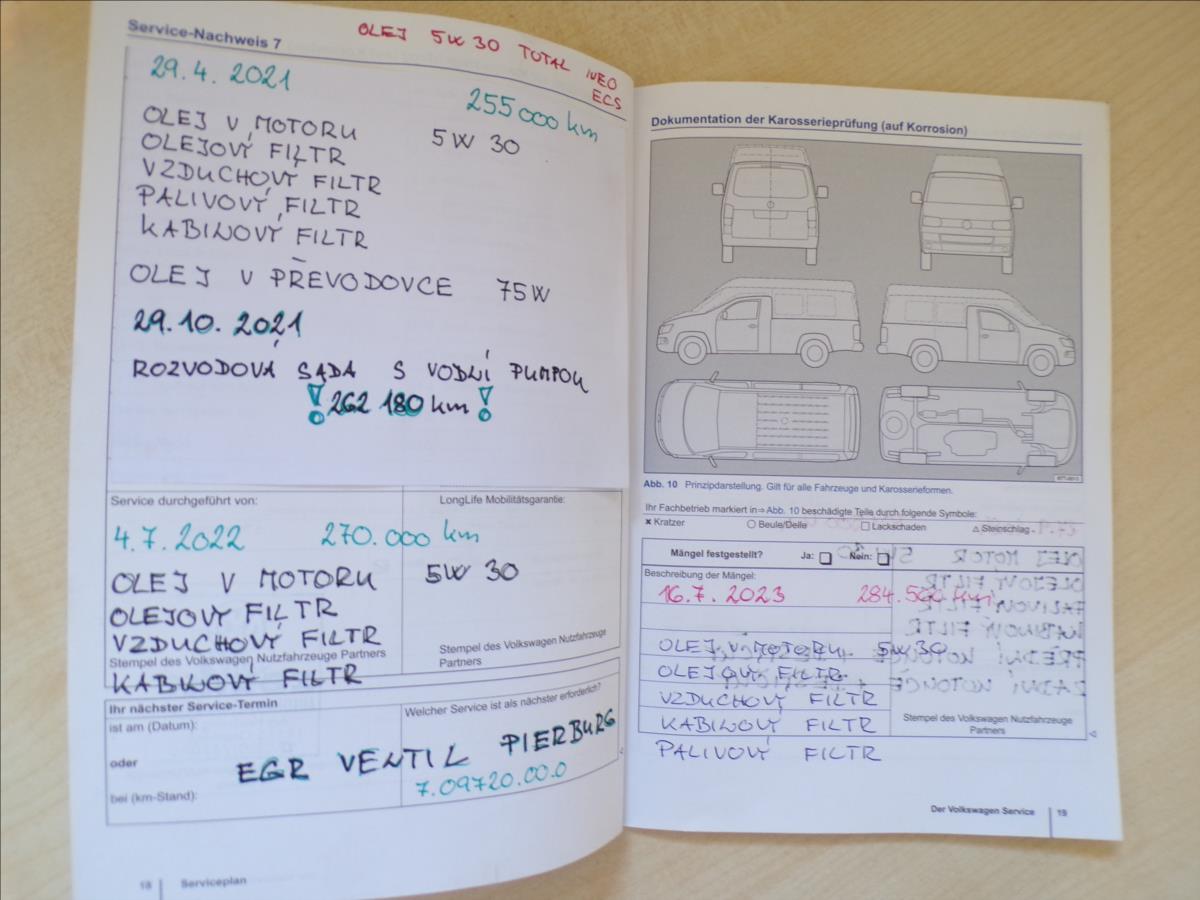 Service-Nachweis 7
OLEJ 5W 30 TOTAL INEO
ECS
29.4.2021
255000 km
OLEJ V MOTORU 5W 30
OLEJOVÝ FILTR
VZDUCHOVÝ FILTR
PALIVOVÝ FILTR
KABINOVÝ FILTR
OLEJ V PŘEVODOVCE 75W
29.10.2021
ROZVODOVÁ SADA S VODNÍ PUMPOU
! 262 180 km !
Service durchgeführt von:
LongLife Mobilitätsgarantie:
4.7.2022 270.000 km
OLEJ V MOTORU 5W 30
OLEJOVÝ FILTR
VZDUCHOVÝ FILTR
Stempel des Volkswagen Nutzfahrzeuge Partners
Stempel des Volkswagen Nutzfahrzeuge
Partners
KABINOVÝ FILTR
Ihr nächster Service-Termin
Welcher Service ist als nächster erforderlich?
ist am (Datum):
oder
EGR VENTIL PIERBURG
7.09720.00.0
bei (km-Stand):
18 Serviceplan
Dokumentation der Karosserieprüfung (auf Korrosion)
Abb. 10 Prinzipdarstellung. Gilt für alle Fahrzeuge und Karosserieformen.
Ihr Fachbetrieb markiert in⇒Abb. 10 beschädigte Teile durch folgende Symbole:
✖ Kratzer ○ Beule/Delle □ Lackschaden △ Steinschlag
Mängel festgestellt? Ja: Nein:
Beschreibung der Mängel:
16.7.2023 284.500 km
OLEJ V MOTORU 5W 30
OLEJOVÝ FILTR
VZDUCHOVÝ FILTR
KABINOVÝ FILTR
PALIVOVÝ FILTR
Stempel des Volkswagen Nutzfahrzeuge
Partners
Der Volkswagen Service 19